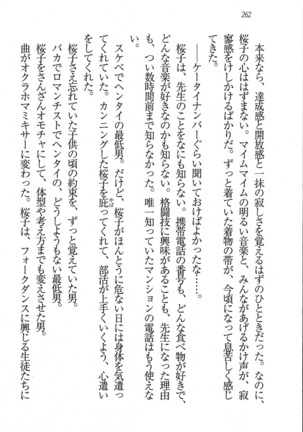 262
本来なら、達成感と開放感と一抹の寂しさを覚えるはずのひとときだった。なのに、
桜子の心ははずまない。マイムマイムの明るい音楽と、みんながあげるかけ声が、寂
寥感をけしかけるばかりだ。ずっと着ていた着物の帯が、今頃になって息苦しく感じ
る。
――ケータイナンバーぐらい聞いておけばよかったな……。
桜子は、先生のことをなにも知らない。携帯電話の番号も、どんな食べ物が好きで、
どんな音楽が好きなのかも知らない。格闘技に興味があることも、先生になった理由
も、つい数時間前まで知らなかった。唯一知っていたマンションの電話はもう使えな
い。
スケベでヘンタイの最低男。だけど、桜子がほんとうに危ない日には身体を気遣っ
てくれて、カンニングした桜子を庇ってくれて、部活が上手くいくよう、心遣い
をしてくれた。
桜子さえ忘れていた子供の頃の約束を、ずっと覚えていた男。
バカでロマンチストでヘンタイの、どうしようもない最低男。
桜子をさんざんオモチャにして、体型や考え方までも変えさせた男。
曲がオクラホマミキサーに変わった。桜子は、フォークダンスに興じる生徒たちに